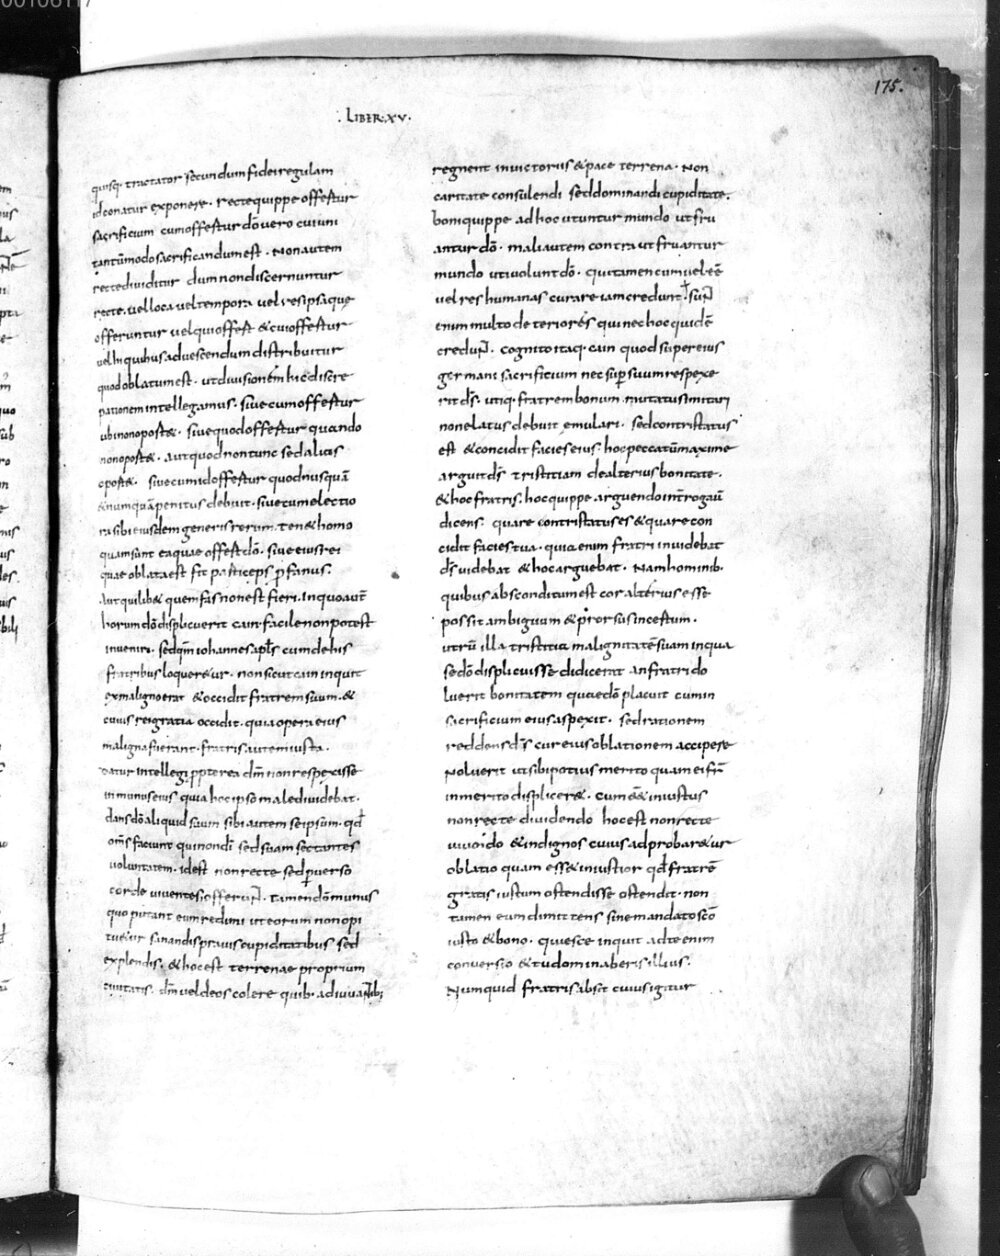 175.
: LIBER·XV·
quisq· tractator secundum fidei regulam
id conatur exponere · recte quippe offertur
sacrificium cum offertur dō vero cui uni
tantūmodo sacrificandum est · Non autem
recte dividitur dum non discernuntur
recte · vel loca vel tempora vel res ipsaque
offeruntur vel qui offert & cui offertur
vel hi quibus ad vescendum distribuitur
quod oblatum est · ut divisionem hic discre
tionem intellegamus · sive cum offertur
ubi non oport& · sive quod offertur quando
non oport& · aut quod non tunc sed alias
oport& · sive cum id offertur quod nusquā
& numquā penitus debuit · sive cum electio
ra sibi eiusdem generis rerum · ten& homo
quam sunt ea quae offert dō · sive eius rei
quae oblata est fit particeps p fanus ·
aut quilib& quem fas non est fieri · In quo aut
horum dō displicuerit cain facile non potest
inveniri · sed qm iohannes apls cum de his
fratribus loquer&ur · non sicut cain inquit
ex maligno erat & occidit fratrem suum · &
cuius rei gratia occidit · quia opera eius
maligna fuerant · fratris autem iusta ·
datur intellegi ppterea dm non respexisse
in munus eius quia hoc ipso male dividebat ·
dans dō aliquid suum sibi autem se ipsum · qd
oms faciunt qui non di sed suam sectantes
voluntatem · id est non recte sed perverso
corde viventes · offerunt · tamen dō munus
quo putant eum redimi ut eorum non opi
tul&ur sanandis pravis cupiditatibus sed
explendis · & hoc est terrenae proprium
civitatis · dm vel deos colere quib· adiuvantib;
regnent in victoriis & pace terrena · Non
caritate consulendi sed dominandi cupiditate ·
boni quippe ad hoc utuntur mundo ut fru
antur dō · mali autem contra ut fruantur
mundo uti volunt dō · qui tamen eum vel eē
vel res humanas curare iam credunt · sunt
enim multo deteriores qui nec hoc quidē
credunt · cognito itaq· cain quod super eius
germani sacrificium nec sup suum respexe
rit ds · utiq· fratrem bonum mutatus imitari
non elatus debuit emulari · sed contristatus
est & concidit facies eius · hoc peccatum maxime
arguit ds tristitiam de alterius bonitate ·
& hoc fratris · hoc quippe arguendo interrogavit
dicens · quare contristatus es & quare con
cidit facies tua · quia enim fratri invidebat
ds videbat & hoc arguebat · Nam hominib·
quibus absconditum est cor alterius esse
possit ambiguum & prorsus incertum ·
utrū illa tristitia malignitatē suam in qua
se dō displicuisse didicerat an fratri do
luerit bonitatem quae dō placuit cum in
sacrificium eius aspexit · sed rationem
reddens ds cur eius oblationem accipere
noluerit ut sibi potius merito quam ei fr
inmerito displicer& · cum ess& iniustus
non recte dividendo hoc est non recte
vivendo & indignus cuius adprobar&ur
oblatio quam ess& iniustior qd fratrē
gratis iustum odisset ostendit · non
tamen eum dimittens sine mandato scō
iusto & bono · quiesce inquit ad te enim
conversio & tu dominaberis illius ·
Numquid fratris absit cuius igitur